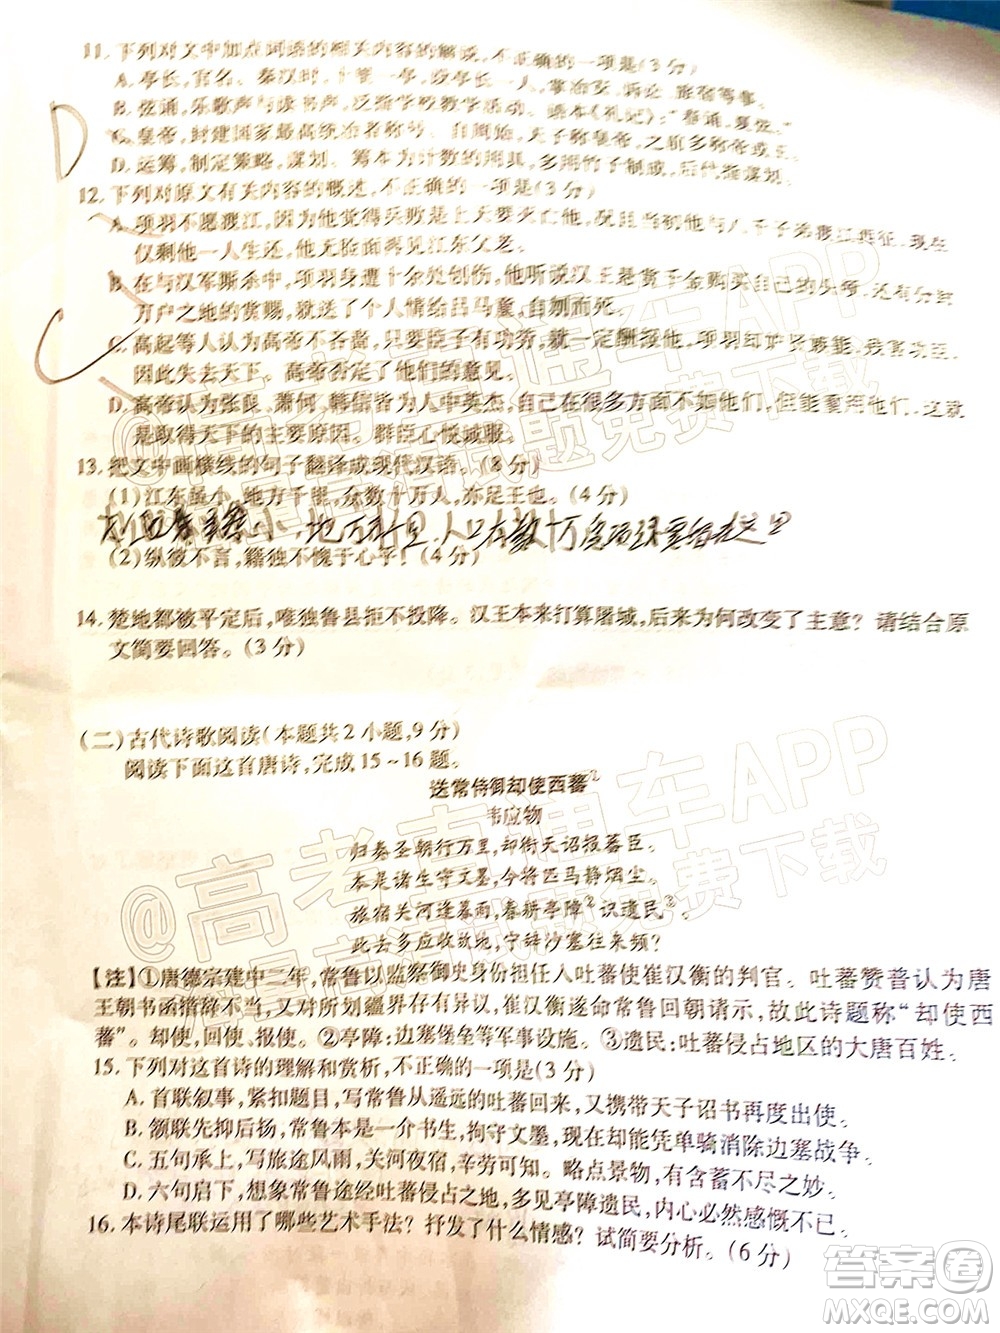 11. 下列对文中加点词语的相关内容的解说,不正确的一项是(3分)
A. 亭长,官名。秦汉时,十里一亭,亭设亭长一人,掌治安、诉讼、旅舍等事。
B. 弦诵,弦歌声与读书声,泛指学校教学活动。语本《礼记》:“春诵,夏弦。”
C. 皇帝,封建国家最高统治者称号。自周始,天子称皇帝,之前多称帝、王。
D. 运筹,制定策略,谋划。筹为计数的用具,多用竹子制成,后代指谋划。
12. 下列对原文有关内容的概述,不正确的一项是(3分)
A. 项羽不愿渡江,因为他觉得兵败是上天要灭亡他,而且当初他与八千子弟渡江西征,现在
仅剩他一人生还,他无脸面再见江东父老。
B. 在与汉军厮杀中,项羽身遭十余处创伤,他听说汉王悬赏千金购买自己的头颅,还有分封
万户之地的赏赐,就送了个人情给吕马童,自刎而死。
C. 高起等人认为高帝不吝啬,只要臣子有功劳,就一定酬报他。项羽却妒贤嫉能,残害功臣,
因此失去天下。高帝肯定了他们的意见。
D. 高帝认为张良、萧何、韩信皆为人中英杰,自己在很多方面不如他们,但能重用他们,这就
是取得天下的主要原因。群臣心悦诚服。
13. 把文中画横线的句子翻译成现代汉语。(8分)
(1)江东虽小,地方千里,众数十万人,亦足王也。(4分)
(2)纵彼不言,籍独不愧于心乎!(4分)
14. 楚地都被平定后,唯独鲁县拒不投降。汉王本来打算屠城,后来为何改变了主意?请结合原
文简要回答。(3分)
(二)古代诗歌阅读(本题共2小题,9分)
阅读下面这首唐诗,完成15~16题。
送常侍御却使西蕃①
韦应物
归奏圣朝行万里,却衔天诏报蕃臣。
本是诸生守文墨,今将匹马静烟尘。
旅宿关河逢暮雨,春耕亭障②识遗民③。
此去多应收故地,宁辞沙塞往来频?
【注】①唐德宗建中二年,常鲁以监察御史身份担任入吐蕃使崔汉衡的判官。吐蕃赞普认为唐
王朝书函措辞不当,又对所划疆界存有异议,崔汉衡遂命常鲁回朝请示,故此诗题称“却使西
蕃”。却使,回使、报使。②亭障:边塞堡垒等军事设施。③遗民:吐蕃侵占地区的大唐百姓。
15. 下列对这首诗的理解和赏析,不正确的一项是(3分)
A. 首联叙事,紧扣题目,写常鲁从遥远的吐蕃回来,又携带天子诏书再度出使。
B. 颔联先抑后扬,常鲁本是一介书生,拘守文墨,现在却能凭单骑消除边塞战争。
C. 五句承上,写旅途风雨,关河夜宿,辛劳可知。略点景物,有含蓄不尽之妙。
D. 六句启下,想象常鲁途经吐蕃侵占之地,多见亭障遗民,内心必然感慨不已。
16. 本诗尾联运用了哪些艺术手法?抒发了什么情感?试简要分析。(6分)
@高考直通车APP
@高考直通车APP
答案卷
MXQE.COM